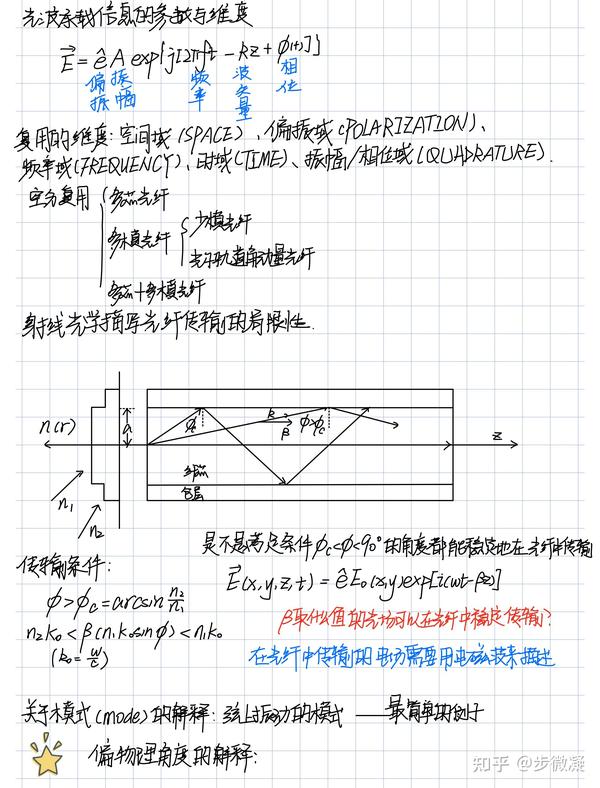 光波承载信息的参数与维度
E = ê A exp{j[2πft - kz + φ(t)]}
偏振 振幅 频率 波矢量 相位
复用的维度:空间域(SPACE)、偏振域(POLARIZATION)、
频率域(FREQUENCY)、时域(TIME)、振幅/相位域(QUADRATURE).
空分复用 { 多芯光纤
多模光纤 { 少模光纤
光子轨道角动量光纤
多芯+多模光纤
射线光学描写光纤传输的局限性.
n(r) a φc k β φ>φc z
纤芯
包层
n₁
n₂
是不是满足条件 φc<φ<90° 的角度都能稳定地在光纤中传输
传输条件:
E(x,y,z,t) = ê E₀(x,y)exp[i(ωt-βz)]
φ>φc=arcsin n₂/n₁
β取什么值的光场可以在光纤中稳定传输?
n₂k₀ < β(n₁k₀sinφ) < n₁k₀
(k₀=ω/c)
在光纤中传输的电场需要用电磁波来描述
关于模式(mode)的解释:弦上振动的模式 ——最简单的例子
偏物理角度的解释:
知乎 @步微凝